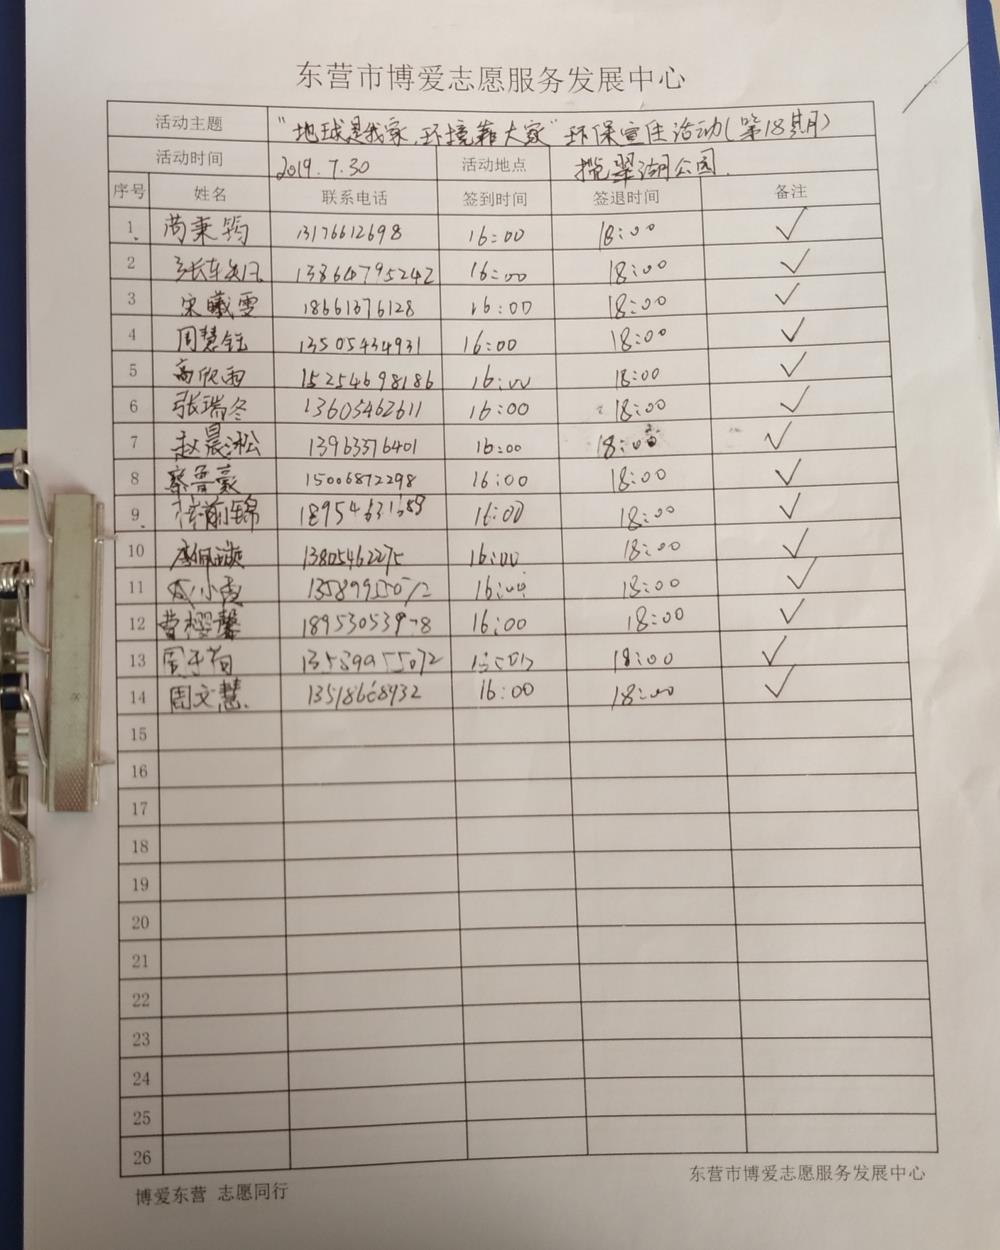 东营市博爱志愿服务发展中心
活动主题 "地球是我家,环境靠大家"环保宣传活动(第18期)
活动时间 2019.7.30 活动地点 揽翠湖公园.
序号 姓名 联系电话 签到时间 签退时间 备注
1 秉筠 13176612698 16:00 18:00 ✓
2 13864795242 16:00 18:00 ✓
3 宋曦雯 18661376128 16:00 18:00 ✓
4 周慧钰 13505434931 16:00 18:00 ✓
5 高欣雨 15254698186 16:00 18:00 ✓
6 张瑞冬 13605462611 16:00 18:00 ✓
7 赵晨淞 13963376401 16:00 18:00 ✓
8 蔡鲁豪 15006872298 16:00 18:00 ✓
9 16:00 18:00 ✓
10 13805462275 16:00 18:00 ✓
11 小霞 13589955072 16:00 18:00 ✓
12 曹樱馨 16:00 18:00 ✓
13 周子荀 13589955072 18:00 ✓
14 周文慧 13518668932 16:00 18:00 ✓
15
16
17
18
19
20
21
22
23
24
25
26
博爱东营 志愿同行
东营市博爱志愿服务发展中心